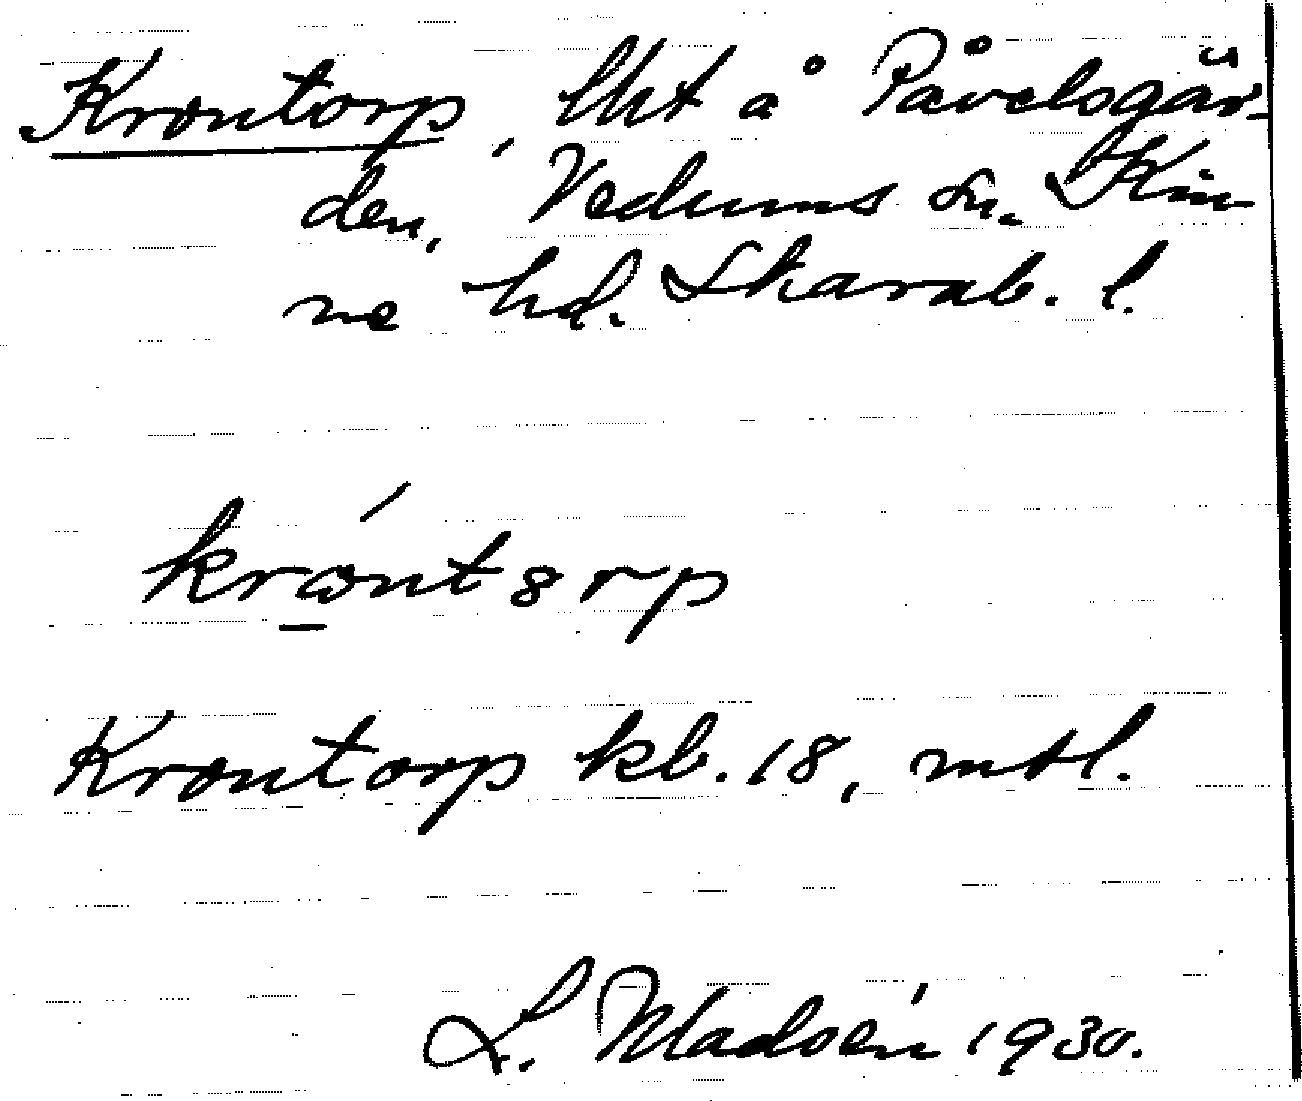 Krontorp, lht å Påvelsgär-
den, Vedums sn. Kin
ne hd. Skarab. l.
króntorp
Krontorp kb. 18, mtl.
L. Madsén 1930.